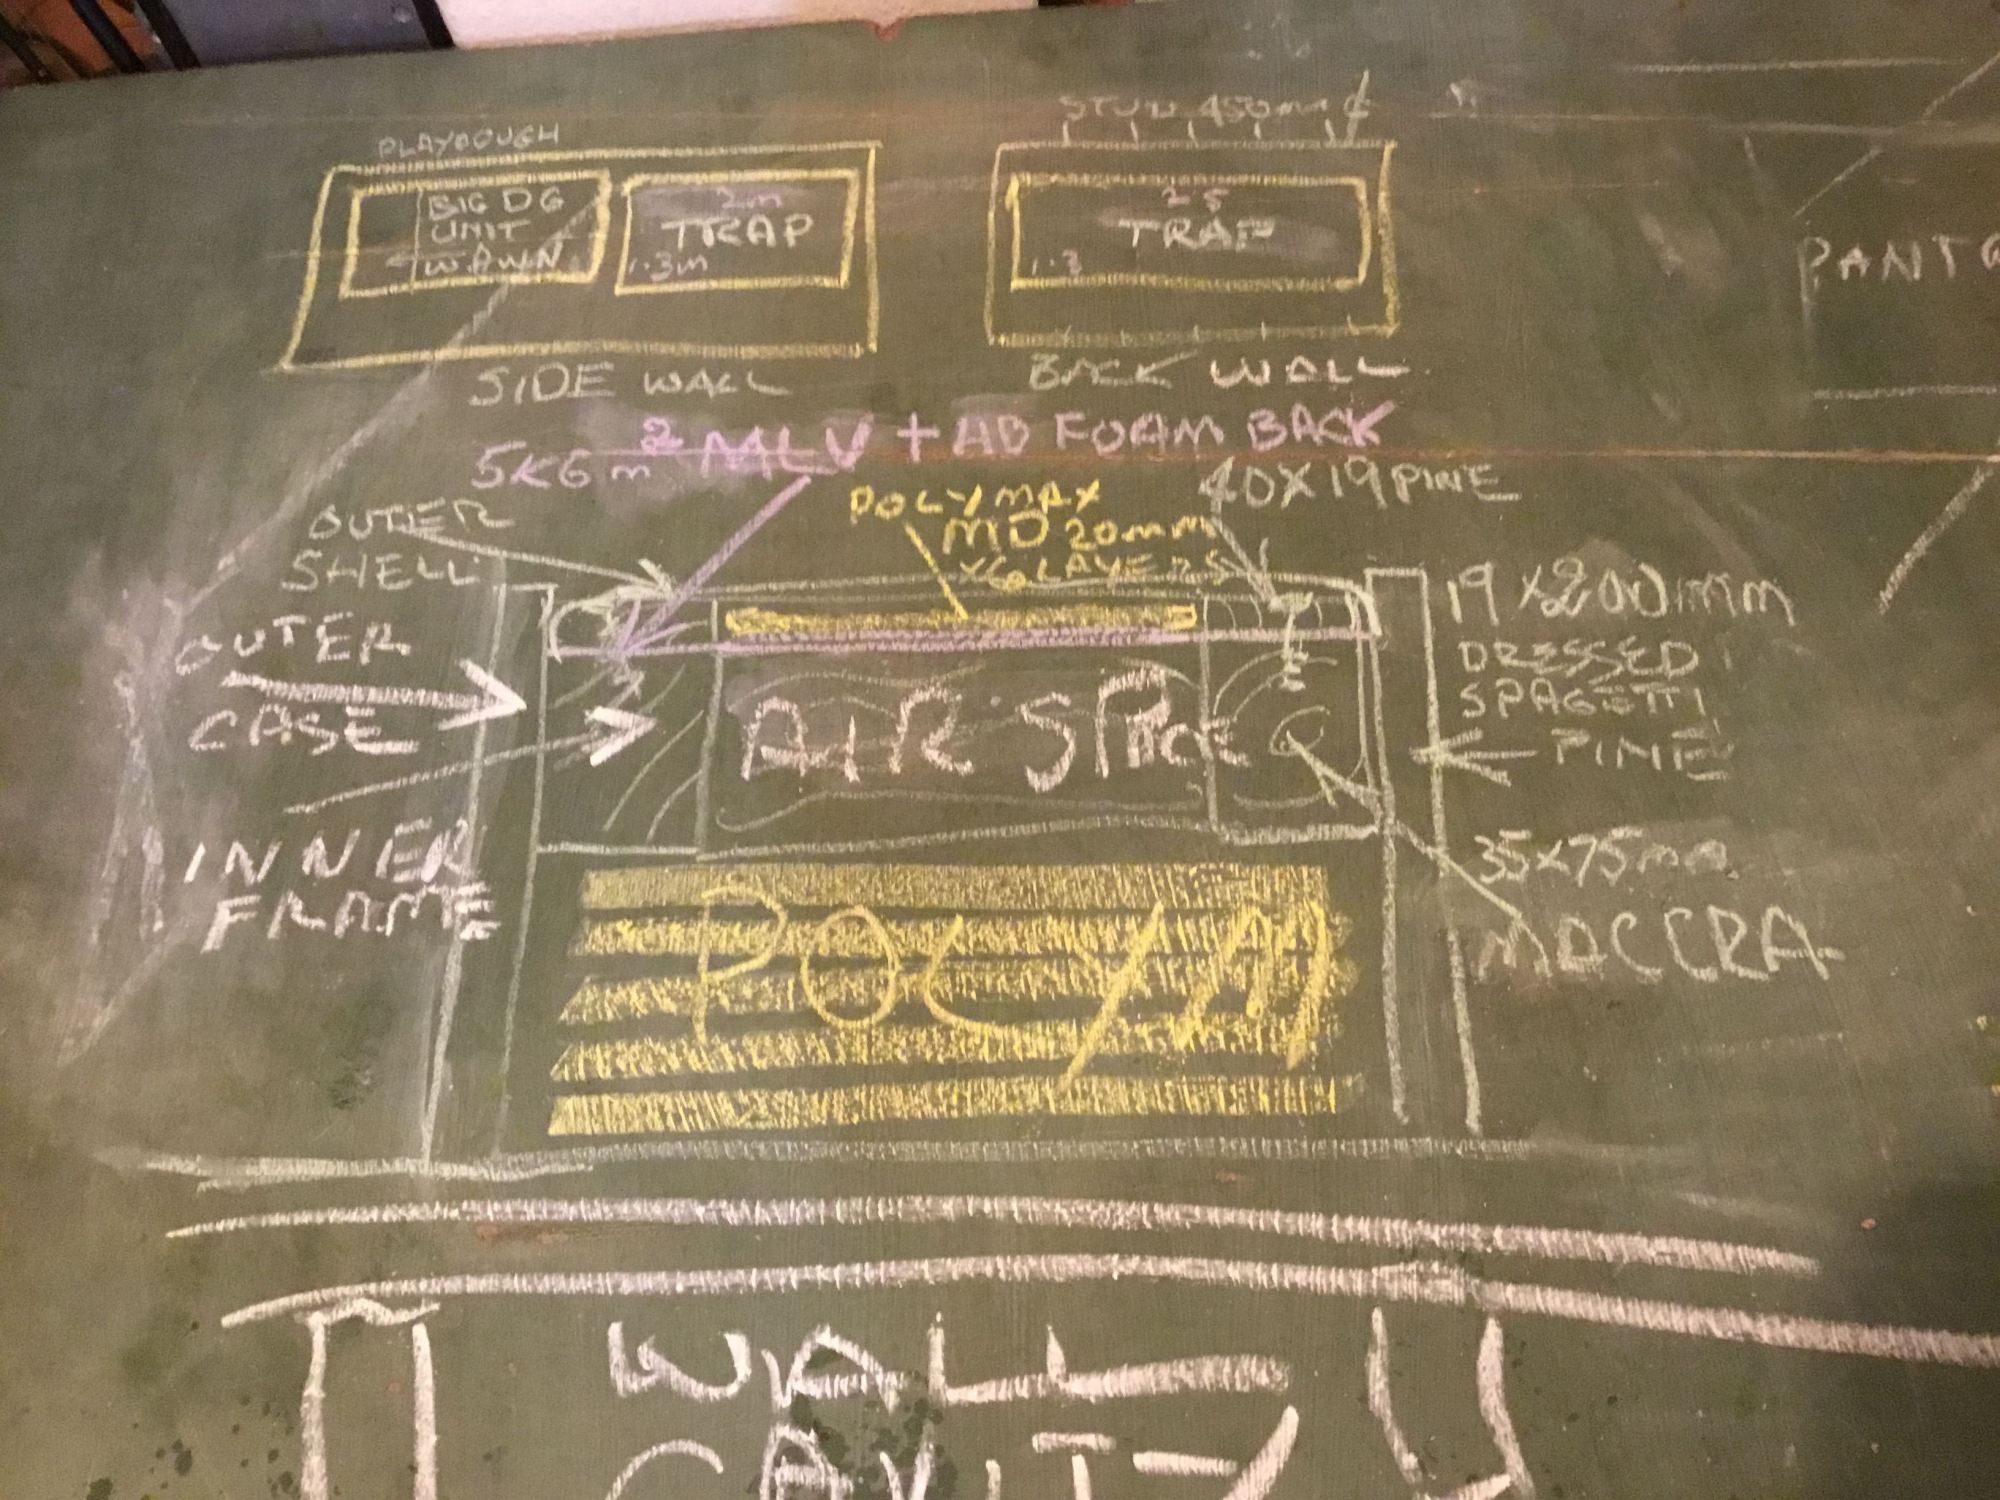 PLAYDOUGH
BIG DG
UNIT
WAWN
2m
TRAP
1.3m
SIDE WALL
STUD 450mm
2 5
TRAP
1.3
BACK WALL
PANTO
5KG m 2 MLV + HD FOAM BACK
OUTER
SHELL
POLYMAX
MD 20mm
x6 LAYERS
40X19 PINE
OUTER
CASE
INNER
FRAME
AIR SPACE
19 x 200mm
DRESSED
SPAGETTI
PINE
35X75mm
MACCRA
POLYM
WALL
CAVITY